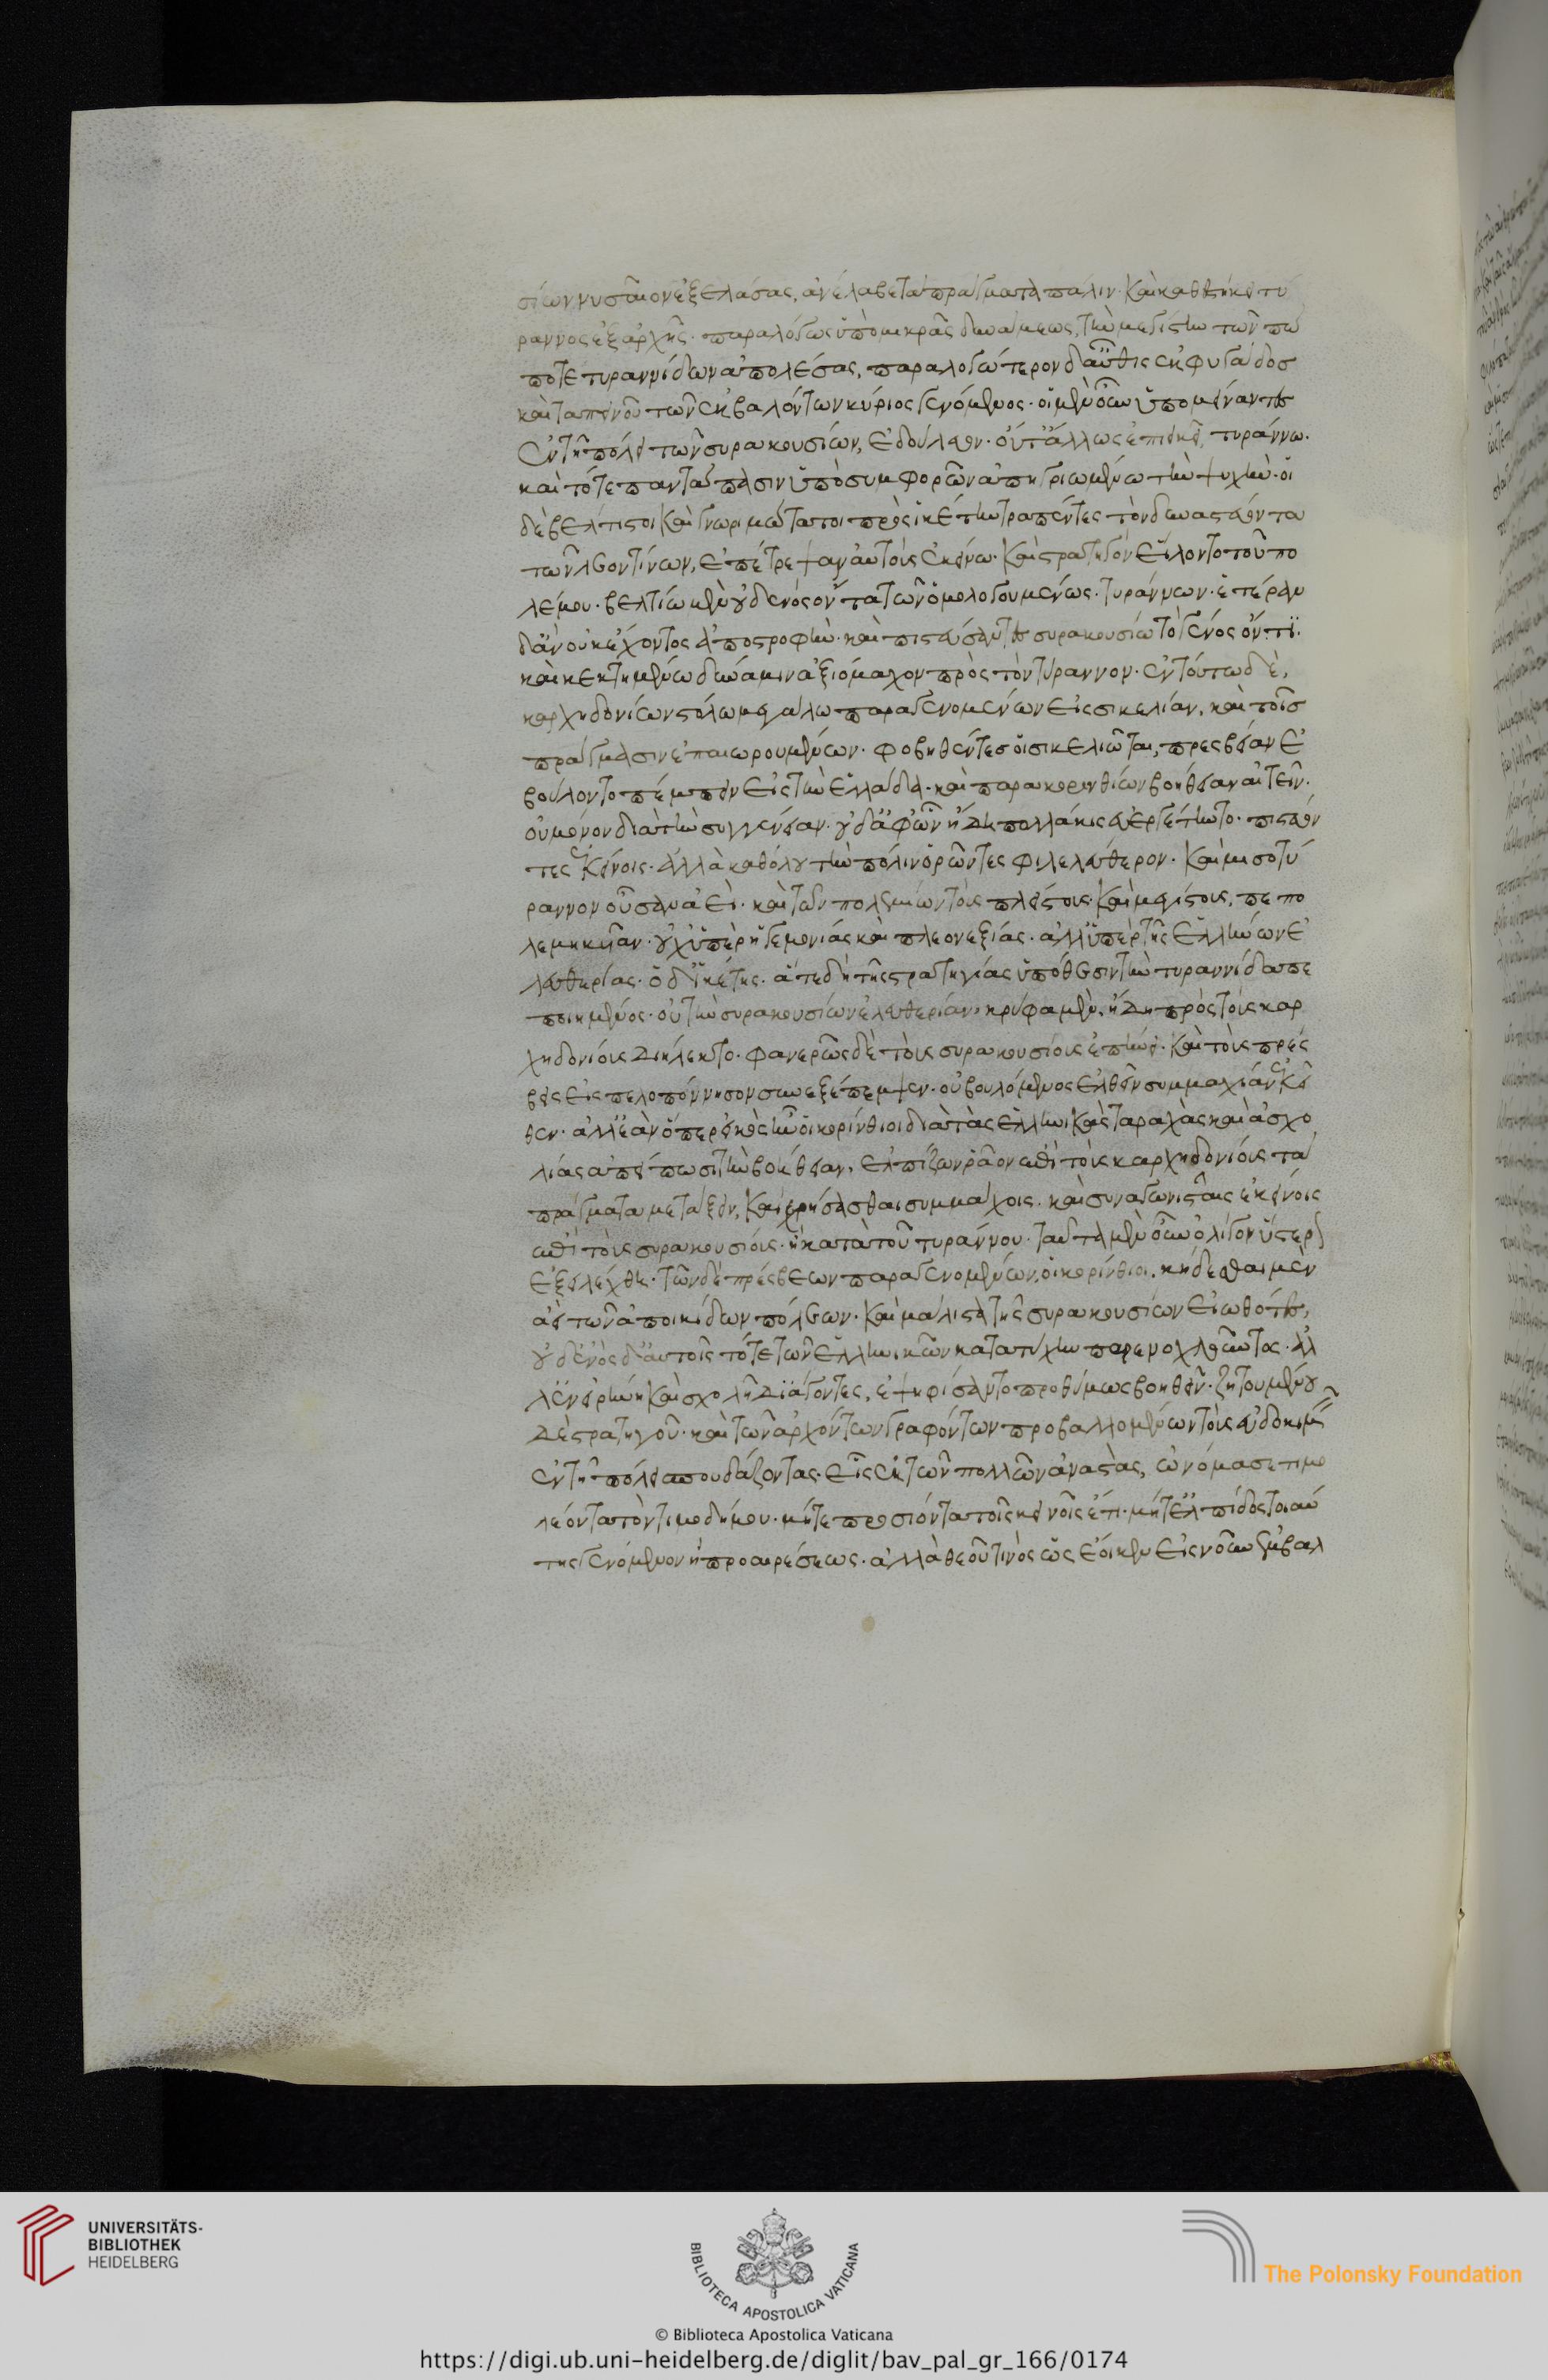 σίων νυσαῖον ἐξελάσας, ἀνέλαβε τὰ πράγματα πάλιν· καὶ καθειστήκει τύ
ραννος ἐξ ἀρχῆς· παραλόγως ὑπὸ μικρᾶς δυνάμεως, τὴν μεγίστην τῶν πώ
ποτε τυραννίδων ἀπολέσας, παραλογώτερον δ' αὖθις ἐκ φυγάδος
καὶ ταπεινοῦ τῶν ἐκβαλόντων κύριος γενόμενος· οἱ μὲν οὖν ὑπομείναντες
ἐν τῇ πόλει τῶν συρακουσίων, ἐδούλευον· οὔτ' ἄλλως ἐπιεικεῖ τυράννω·
καὶ τότε παντάπασιν ὑπὸ συμφορῶν ἀπηγριωμένω τὴν ψυχήν· οἱ
δὲ βέλτιστοι καὶ γνωριμώτατοι πρὸς ἱκέτην τραπέντες τὸν δυναστεύοντα
τῶν λεοντίνων, ἐπέτρεψαν αὑτοὺς ἐκείνω· καὶ στρατηγὸν εἵλοντο τοῦ πο
λέμου· βελτίω μὲν οὐδενὸς ὄντα τῶν ὁμολογουμένως τυράννων· ἑτέραν
δ' ἂν οὐκ ἔχοντες ἀποστροφήν· καὶ πιστεύσαντες συρακουσίω τὸ γένος ὄντι·
καὶ κεκτημένω δύναμιν ἀξιόμαχον πρὸς τὸν τύραννον· ἐν τούτω δὲ,
καρχηδονίων στόλω μεγάλω παραγενομένων εἰς σικελίαν, καὶ τοῖς
πράγμασιν ἐπαιωρουμένων· φοβηθέντες οἱ σικελιῶται, πρεσβείαν ἐ
βούλοντο πέμπειν εἰς τὴν ἑλλάδα· καὶ παρὰ κορινθίων βοήθειαν αἰτεῖν·
οὐ μόνον διὰ τὴν συγγένειαν· οὐδ' ἀφ' ὧν ἤδη πολλάκις εὐεργέτηντο· πιστεύον
τες ἐκείνοις· ἀλλὰ καθόλου τὴν πόλιν ὁρῶντες φιλελεύθερον· καὶ μισοτύ
ραννον οὖσαν ἀεί· καὶ τῶν πολέμων τοὺς πλείστους καὶ μεγίστους, πεπο
λεμηκυῖαν· οὐχ ὑπὲρ ἡγεμονίας καὶ πλεονεξίας· ἀλλ' ὑπὲρ τῆς ἑλλήνων ἐ
λευθερίας· ὁ δ' ἱκέτης· ἅτε δὴ τῆς στρατηγίας ὑπόθεσιν τὴν τυραννίδα πε
ποιημένος· οὐ τὴν συρακουσίων ἐλευθερίαν, κρύφα μὲν, ἤδη πρὸς τοὺς καρ
χηδονίους διείλεκτο· φανερῶς δὲ τοὺς συρακουσίους ἐπῄνει· καὶ τοὺς πρέσ
βεις εἰς πελοπόννησον συνεξέπεμψεν· οὐ βουλόμενος ἐλθεῖν συμμαχίαν ἐκεῖ
θεν· ἀλλ' ἐὰν ὅπερ εἰκὸς ἦν οἱ κορίνθιοι διὰ τὰς ἑλληνικὰς ταραχὰς καὶ ἀσχο
λίας ἀπείπωσι τὴν βοήθειαν, ἐλπίζων ῥᾷον ἐπὶ τοὺς καρχηδονίους τὰ
πράγματα μετάξειν, καὶ χρήσασθαι συμμάχοις· καὶ συναγωνισταῖς ἐκείνοις
ἐπὶ τοὺς συρακουσίους· ἢ κατὰ τοῦ τυράννου· ταῦτα μὲν οὖν ὀλίγον ὕστερον
ἐξηλέχθη· τῶν δὲ πρέσβεων παραγενομένων, οἱ κορίνθιοι, κήδεσθαι μὲν
ἀεὶ τῶν ἀποικίδων πόλεων· καὶ μάλιστα τῆς συρακουσίων εἰωθότες,
οὐδενὸς δ' αὐτοῖς τότε τῶν ἑλληνικῶν κατὰ τύχην παρενοχλοῦντος· ἀλ
λ' ἐν εἰρήνη καὶ σχολῇ διάγοντες, ἐψηφίσαντο προθύμως βοηθεῖν· ζητουμένου
δὲ στρατηγοῦ· καὶ τῶν ἀρχόντων γραφόντων προβαλλομένων τοὺς εὐδοκιμεῖν
ἐν τῇ πόλει σπουδάζοντας· εἷς ἐκ τῶν πολλῶν ἀναστὰς, ὠνόμασε τιμο
λέοντα τὸν τιμοδήμου· μήτε προσιόντα τοῖς κοινοῖς ἔτι· μήτ' ἐλπίδος τοιαύ
της γενόμενον ἢ προαιρέσεως· ἀλλὰ θεοῦ τινὸς ὡς ἔοικεν εἰς νοῦν ἐμβαλ
UNIVERSITÄTS-
BIBLIOTHEK
HEIDELBERG
BIBLIOTECA APOSTOLICA VATICANA
The Polonsky Foundation
© Biblioteca Apostolica Vaticana
https://digi.ub.uni-heidelberg.de/diglit/bav_pal_gr_166/0174